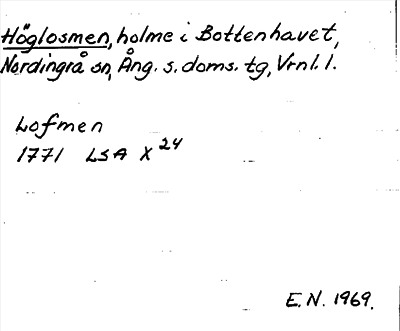 Höglosmen, holme i Bottenhavet,
Nordingrå sn, Ång. s. doms. tg, Vrnl. l.
Lofmen
1771 LSA X 24
E.N. 1969.